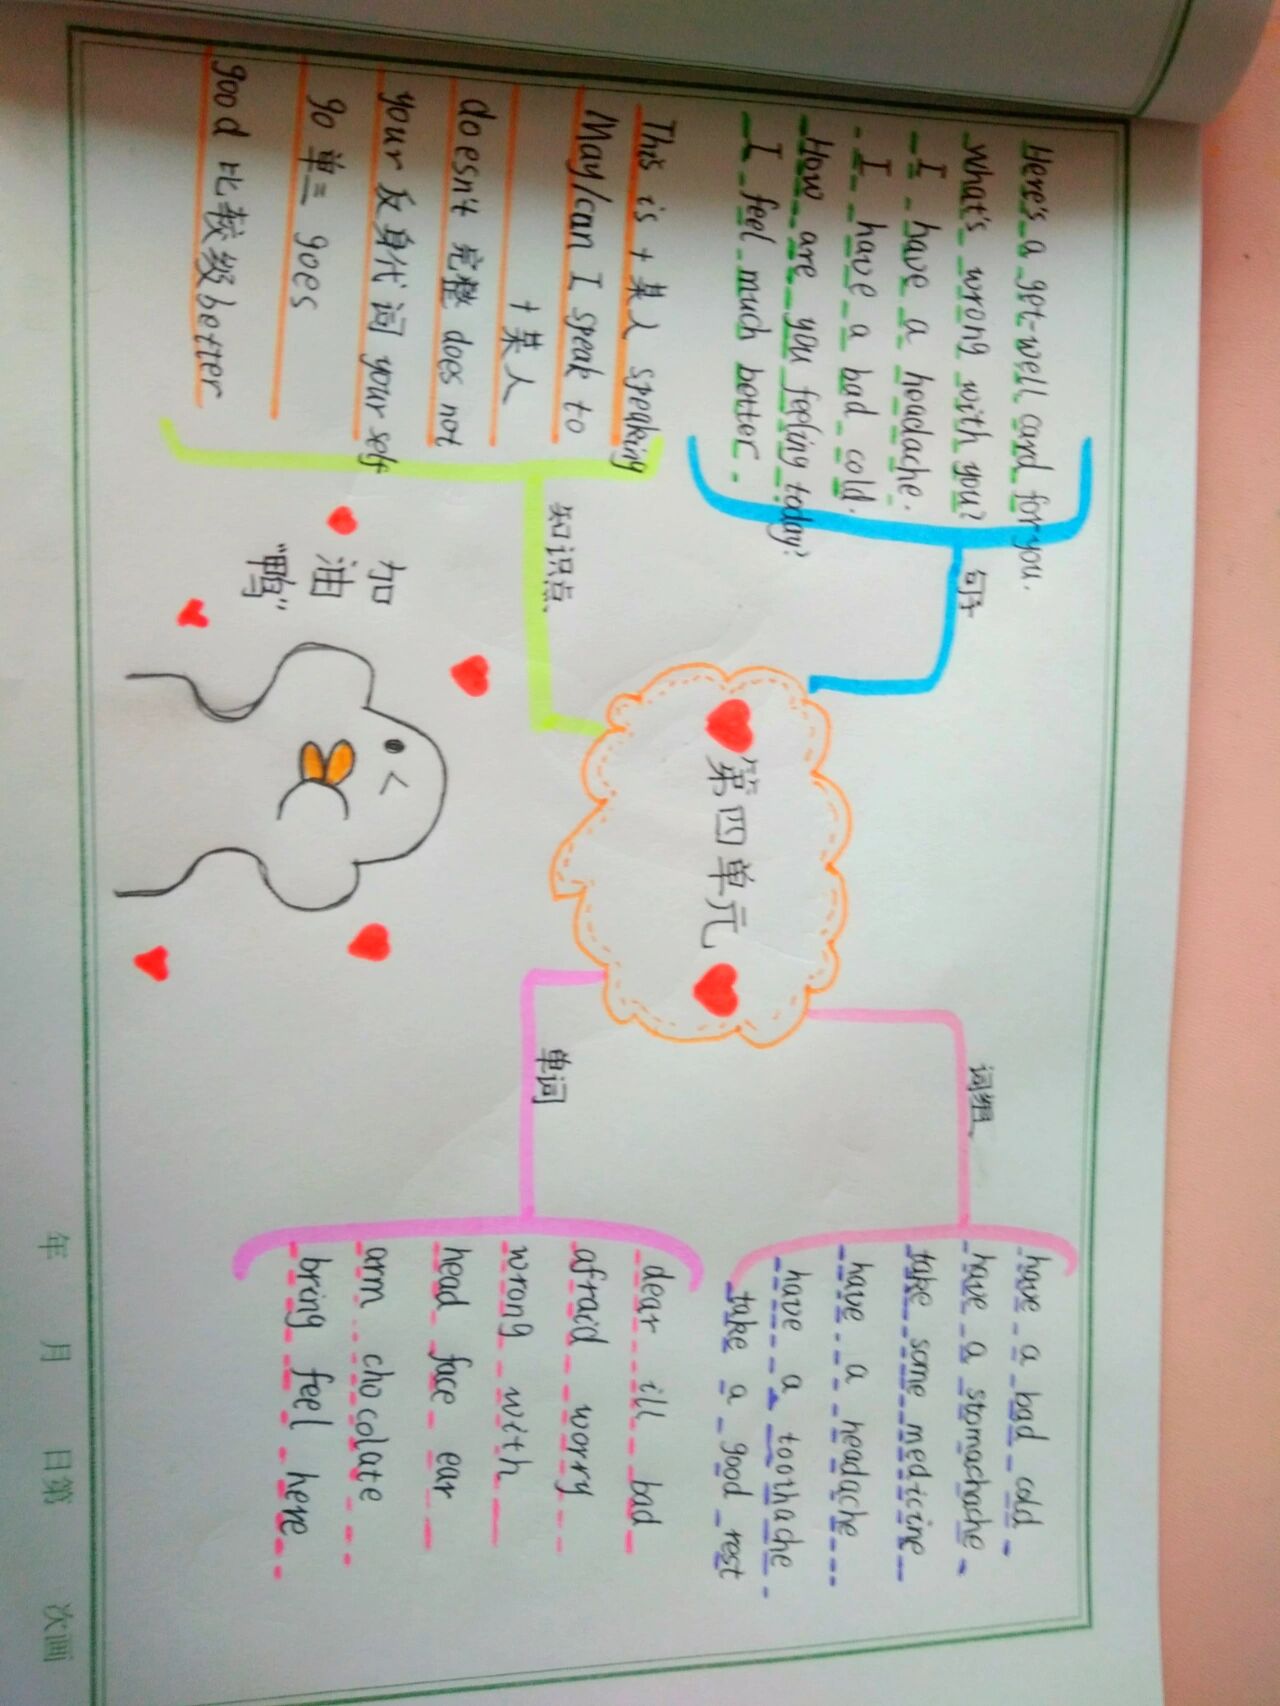 Here's a get-well card for you.
What's wrong with you?
I have a headache.
I have a bad cold.
How are you feeling today?
I feel much better.
句子
This is + 某人 speaking
May/can I speak to
+ 某人
doesn't 完整 does not
your 反身代词 your self
go 单三 goes
good 比较级 better
知识点
第四单元
词组
have a bad cold
have a stomachache
take some medicine
have a headache
have a toothache
take a good rest
单词
dear ill bad
afraid worry
wrong with
head face ear
arm chocolate
bring feel here
加
油
"鸭"
年 月 日第 次画